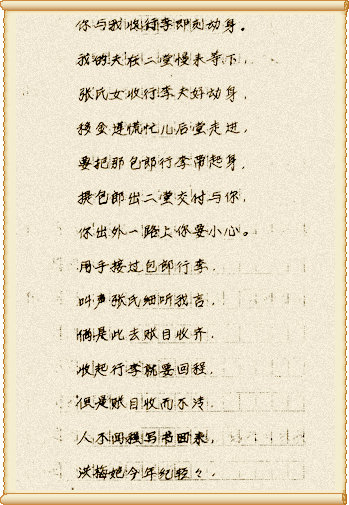 你与我收行李即刻动身。
我的夫在二堂慢来等下，
张氏女收行李夫好动身，
移金莲慌忙儿后堂走进，
要把那包郎行李带起身，
提包郎出二堂交付与你，
你出外一路上你要小心。
用手接过包郎行李，
叫声张氏细听我言，
倘是此去账目收齐，
收起行李就要回程，
但是账目收而不清，
人不回程写书回来，
洪梅妃今年纪轻々，